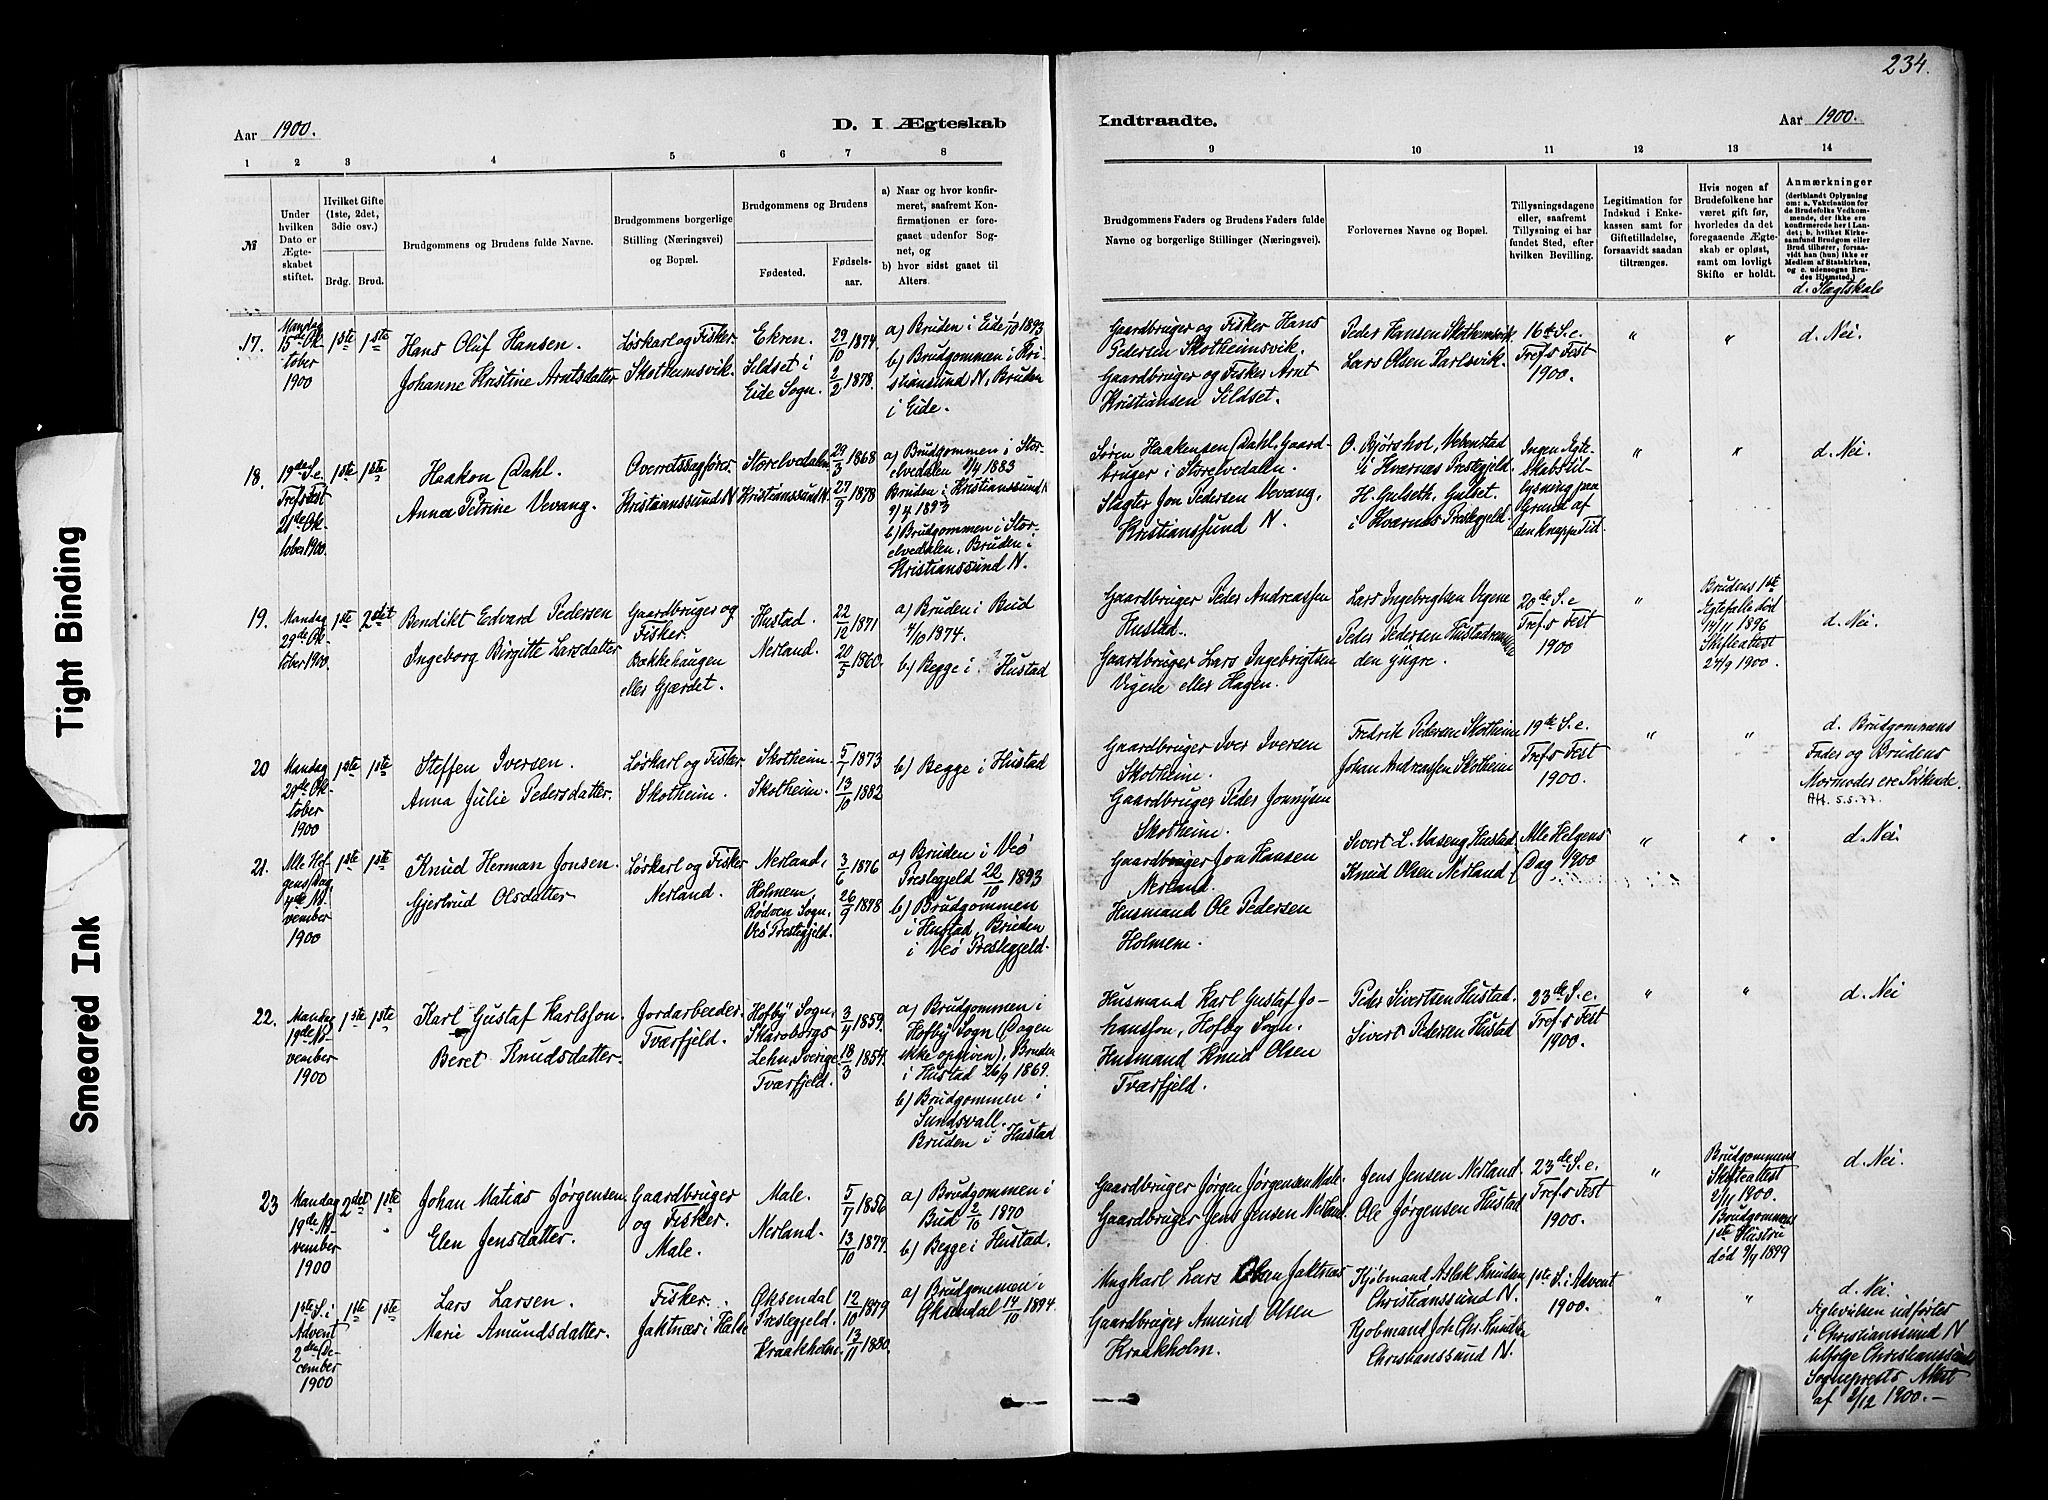 234.
Aar 1900.
D. I Ægteskab
Indtraadte.
Aar 1900.
1 2 3 4 5 6 7 8 9 10 11 12 13 14
№
Under hvilken Dato er Ægteskabet stiftet.
Hvilket Gifte (1ste, 2det, 3die osv.)
Brdg. Brud.
Brudgommens og Brudens fulde Navne.
Brudgommens borgerlige Stilling (Næringsvei) og Bopæl.
Brudgommens og Brudens
Fødested.
Fødselsaar.
a) Naar og hvor konfirmeret, saafremt Konfirmationen er foregaaet udenfor Sognet, og
b) hvor sidst gaaet til Alters.
Brudgommens Faders og Brudens Faders fulde Navne og borgerlige Stillinger (Næringsvei).
Forlovernes Navne og Bopæl.
Tillysningsdagene eller, saafremt Tillysning ei har fundet Sted, efter hvilken Bevilling.
Legitimation for Indskud i Enkekassen samt for Giftetilladelse, forsaavidt saadan tiltrænges.
Hvis nogen af Brudefolkene har været gift før, hvorledes da det foregaaende Ægteskab er opløst, samt om lovligt Skifte er holdt.
Anmærkninger
(deriblandt Oplysning om: a. Vakcination for de Brudefolks Vedkommende, der ikke ere konfirmerede her i Landet; b. hvilket Kirkesamfund Brudgom eller Brud tilhører, forsaavidt han (hun) ikke er Medlem af Statskirken, og c. udensogns Brudes Hjemsted.)
d. Slægtskab
17.
Mandag
15de Ok-
tober
1900
1ste 1ste
Hans Oluf Hansen.
Johanne Kristine Arntsdatter
Løskarl og Fisker
Skotheimsvik.
Ekren.
Sildset i
Eide Sogn.
29/10 1874.
2/2 1878.
a) Bruden i Eide 1/10 1893
b) Brudgommen i Kri-
stiansund N, Bruden
i Eide.
Gaardbruger og Fisker Hans
Pedersen Skotheimsvik.
Gaardbruger og Fisker Arnt
Kristiansen Sildset.
Peder Hansen Skotheimsvik
Lars Olsen Karlsvik.
16de S. e.
Tref.s Fest
1900.
" "
d. Nei.
18.
19de S. e.
Tref.s Fest
21de Ok-
tober 1900.
1ste 1ste
Haakon Dahl.
Anna Petrine Vevang.
Overretssagfører
Kristianssund N
Storelvedalen
Kristianssund N.
29/3 1868
27/9 1878
a) Brudgommen i Stor-
elvedalen 1/4 1883
Bruden i Kristianssund N
9/4 1893
b) Brudgommen i Stor-
elvedalen, Bruden i
Kristianssund N.
Søren Haakensen Dahl, Gaard-
bruger i Storelvedalen.
Slagter Jon Pedersen Vevang,
Kristianssund N.
O. Bjørshol, Vebenstad
i Kværnes Prestegjeld.
H. Gulseth, Gulset.
i Kværnes Prestegjeld.
Ingen Ægte-
skabstil-
lysning paa
Grund af
den knappe Tid.
" "
d. Nei.
19.
Mandag
29de Ok-
tober 1900.
1ste 2det
Bendikt Edvard Pedersen
Ingeborg Birgitte Larsdatter
Gaardbruger og
Fisker.
Bækkehaugen
eller Gjærdet.
Hustad.
Nerland.
22/12 1871
20/5 1860.
a) Bruden i Bud
4/10 1874.
b) Begge i Hustad
Gaardbruger Peder Andreassen
Hustad.
Gaardbruger Lars Ingebrigtsen
Vigene eller Hagen.
Lars Ingebrigtsen Vigene
Peder Pedersen Hustad
den yngre.
20de S. e
Tref.s Fest
1900
"
Brudens 1ste
Ægtefælle død
14/11 1896
Skifteattest
24/9 1900.
d. Nei.
20
Mandag
29de Ok-
tober
1900
1ste 1ste
Steffen Iversen.
Anna Julie Pedersdatter.
Løskarl og Fisker
Skotheim.
Skotheim.
Skotheim.
5/1 1873
13/10 1882
b) Begge i Hustad
Gaardbruger Iver Iversen
Skotheim.
Gaardbruger Peder Jonnysen
Skotheim.
Fredrik Pedersen Skotheim
Johan Andreassen Skotheim
19de S. e.
Tref.s Fest
1900.
" "
d. Brudgommens
Fader og Brudens
Mormoder ere Søskende.
AH. 5.5.77.
21.
Alle Hel-
gens Dag
4de No-
vember
1900
1ste 1ste
Knud Herman Jonsen.
Gjertrud Olsdatter
Løskarl og Fisker
Nerland.
Nerland,
Holmem,
Rødven Sogn,
Veø Prestegjeld.
3/6 1876
26/9 1878
a) Bruden i Veø
Prestegjeld 22/10 1893
b) Brudgommen
i Hustad, Bruden
i Veø Prestegjeld.
Gaardbruger Jon Hansen
Nerland.
Husmand Ole Pedersen
Holmem.
Sivert L. Vaseng Hustad
Knud Olsen Nerland
Alle Helgens
Dag 1900
" "
d. Nei.
22.
Mandag
19de No-
vember
1900
1ste 1ste
Karl Gustaf Karlsson.
Beret Knudsdatter.
Jordarbeider
Tværfjeld.
Hofby Sogn,
Skaraborgs
Lehn, Sverige.
Tværfjeld.
3/4 1859.
18/3 1854.
a) Brudgommen i
Hofby Sogn (Dagen
ikke opgiven), Bruden
i Hustad 26/9 1869.
b) Brudgommen i
Sundsvall.
Bruden i Hustad
Husmand Karl Gustaf Jo-
hansson, Hofby Sogn.
Husmand Knud Olsen
Tværfjeld.
Peder Sivertsen Hustad.
Sivert Pedersen Hustad
23de S. e.
Tref.s Fest
1900.
" "
d. Nei
23
Mandag
19de No-
vember
1900
2det 1ste
Johan Matias Jørgensen.
Elen Jensdatter.
Gaardbruger
og Fisker.
Male.
Male.
Nerland.
5/7 1856
13/10 1879.
a) Brudgommen i
Bud 2/10 1870
b) Begge i Hustad.
Gaardbruger Jørgen Jørgensen Male.
Gaardbruger Jens Jensen Nerland.
Jens Jensen Nerland.
Ole Jørgensen Hustad
23de S. e.
Tref.s Fest
1900.
"
Brudgommens
Skifteattest
2/11 1900.
Brudgommens
1ste Hustru
død 9/4 1899
d. Nei.
1ste S. i
Advent
2den De-
cember
1900
1ste 1ste
Lars Larsen.
Marie Amundsdatter.
Fisker.
Jaktnæs i Halse
Øksendal
Prestegjeld.
Kraakholm.
12/10 1879
13/11 1880.
a) Brudgommen i
Øksendal 14/10 1894.
Ungkarl Lars Olsen Jaktnæs
Gaardbruger Amund Olsen
Kraakholm.
Kjøbmand Aslak Knudsen
Christianssund N.
Kjøbmand Joh. Chr. Knudsen
Christianssund N.
1ste S. i Advent
1900.
" "
d. Nei.
Ægtevielsen udførtes
i Christianssund N
tilfølge Christianssunds
Sogneprests Attest
af 2/12 1900.-
Tight Binding
Smeared Ink